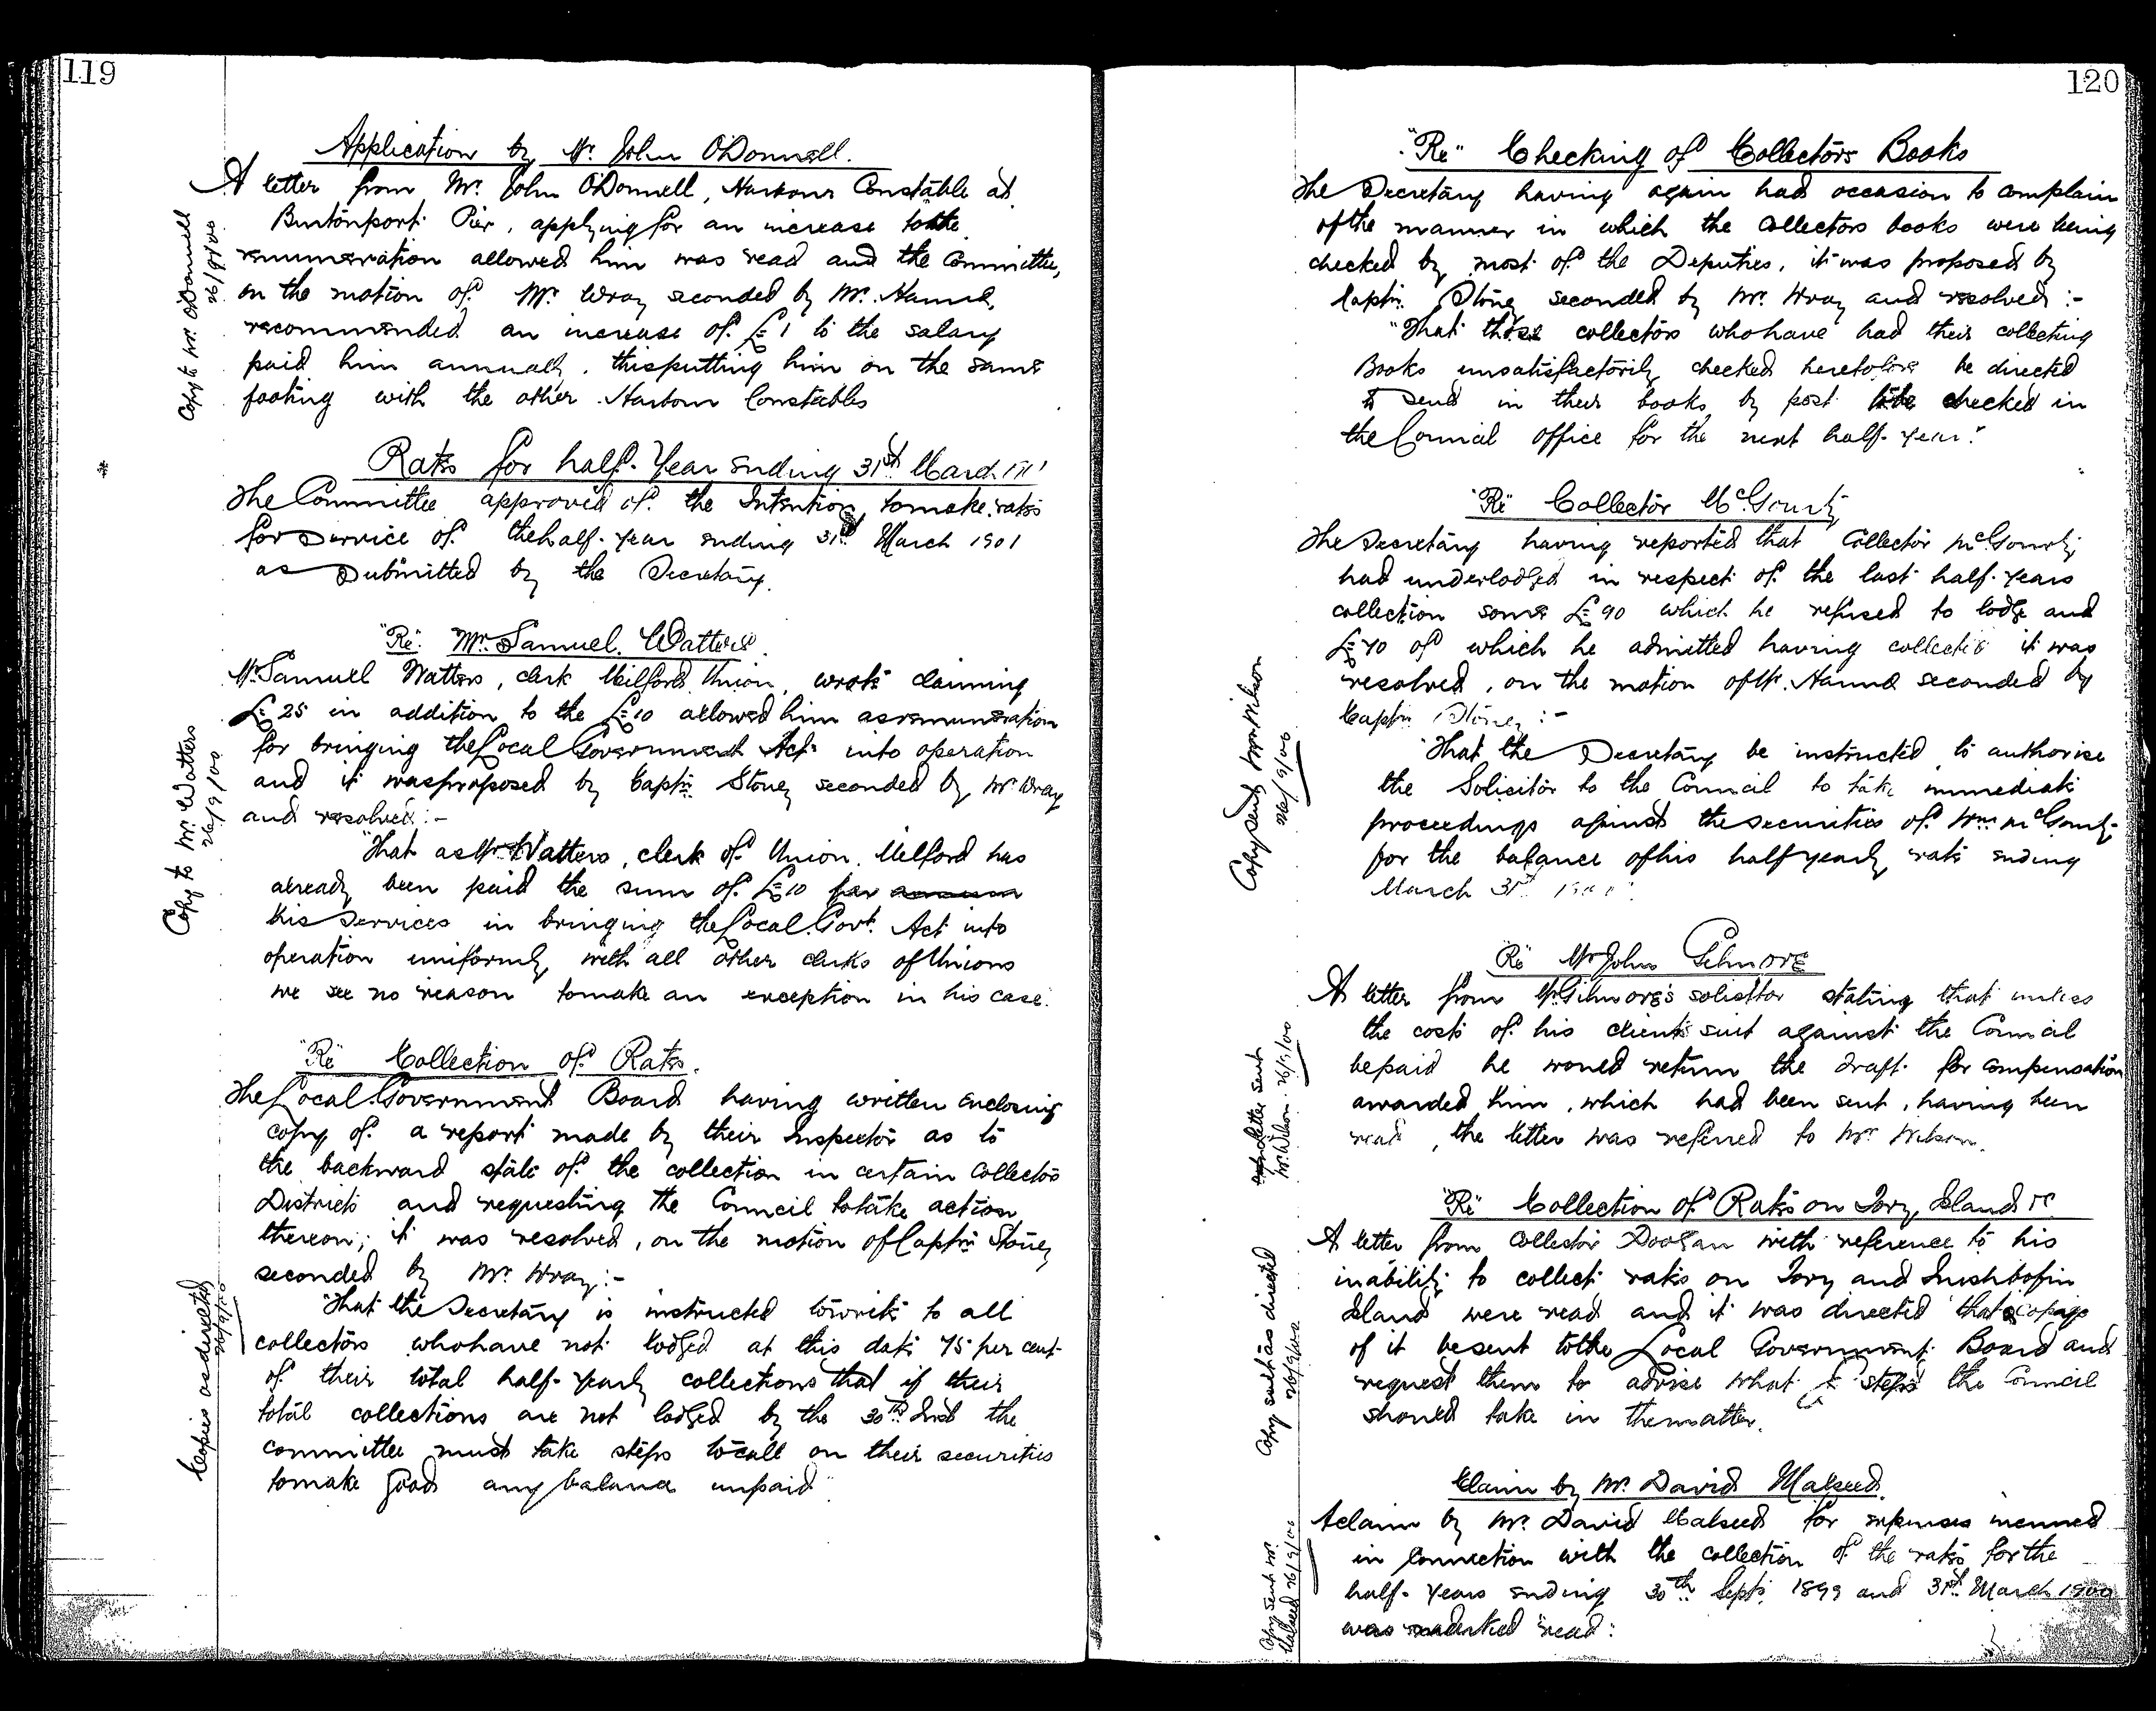 119
Application by Mr. John O'Donnell.
A letter from Mr. John O'Donnell, Harbour Constable at
Burtonport Pier, applying for an increase to the
remuneration allowed him was read and the Committee,
on the motion of Mr. Wray seconded by Mr. Hanna,
recommended an increase of £1 to the salary
paid him annually, thus putting him on the same
footing with the other Harbour Constables
Copy to Mr. O'Donnell
26/9/00
Rates for half-Year ending 31st March
The Committee approved of the Intention to make rates
for service of the half-year ending 31st March 1901
as submitted by the Secretary.
*
"Re" Mr. Samuel Watters.
Mr. Samuel Watters, clerk Milford Union, wrote claiming
£25 in addition to the £10 allowed him as remuneration
for bringing the Local Government Act into operation
and it was proposed by Captn. Stoney seconded by Mr. Wray
and resolved:-
"That as Mr Watters, clerk of Union, Milford has
already been paid the sum of £10 for annum
his services in bringing the Local Govt. Act into
operation uniformly with all other clerks of Unions
we see no reason to make an exception in his case."
Copy to Mr. Watters
26/9/00
"Re" Collection of Rates.
The Local Government Board having written enclosing
copy of a report made by their Inspector as to
the backward state of the collection in certain Collectors
Districts and requesting the Council to take action
thereon; it was resolved, on the motion of Captn Stoney
seconded by Mr. Wray:-
"That the Secretary is instructed to write to all
collectors who have not lodged at this date 75 per cent
of their total half-yearly collections that if their
total collections are not lodged by the 30th Inst the
committee must take steps to call on their securities
to make good any balance unpaid"
Copies as directed
26/9/00
120
"Re" Checking of Collectors Books
The Secretary having again had occasion to complain
of the manner in which the Collectors books were being
checked by most of the Deputies, it was proposed by
Captn. Stoney seconded by Mr. Wray and resolved:-
"That those collectors who have had their collecting
Books unsatisfactorily checked heretofore be directed
to send in their books by post to be checked in
the Council office for the next half-year."
"Re" Collector McGourty
The Secretary having reported that Collector McGourty
had underlodged in respect of the last half-years
collection some £90 which he refused to lodge and
£70 of which he admitted having collected it was
resolved, on the motion of Mr. Hanna seconded by
Captn Stoney:-
"That the Secretary be instructed to authorise
the Solicitor to the Council to take immediate
proceedings against the securities of Wm McGourty
for the balance of his half yearly rate ending
March 31st
Copy sent Mr. Wilson
26/9/00
"Re" Mr John Gilmore
A letter from Mr. Gilmore's solicitor stating that unless
the costs of his clients suit against the Council
be paid he would return the draft for compensation
awarded him, which had been sent, having been
read, the letter was referred to Mr Wilson.
letter sent
Mr. Wilson. 26/9/00
"Re" Collection of Rates on Tory Island &c
A letter from Collector Doogan with reference to his
inability to collect rates on Tory and Inishbofin
Island were read and it was directed that a copy
of it be sent to the Local Government Board and
request them to advise what steps the Council
should take in the matter.
Copy sent as directed
26/9/00
Claim by Mr. David Malseed.
A claim by Mr. David Malseed for expenses incurred
in connection with the collection of the rates for the
half-years ending 30th Septr. 1899 and 31st March 1900
was marked "read".
Copy sent Mr.
Malseed 26/9/00